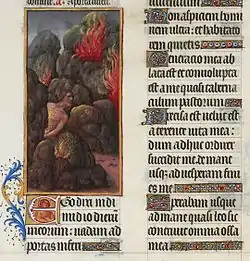 Non aspiciam homi
nem ultra: et habitato
rem quietis
Generacio mea ab
lata est et conuoluta
est a me quasi taberna
culum pastorum
Precisa est uelut
a texente uita mea:
dum adhuc ordirer
succidit me de mane
usque ad uesperam fini
es me
Sperabam usque
ad mane quasi leo sic
contriuit omnia ossa
mea
Ego dixi in di
midio dierum
meorum: uadam ad
portas inferi